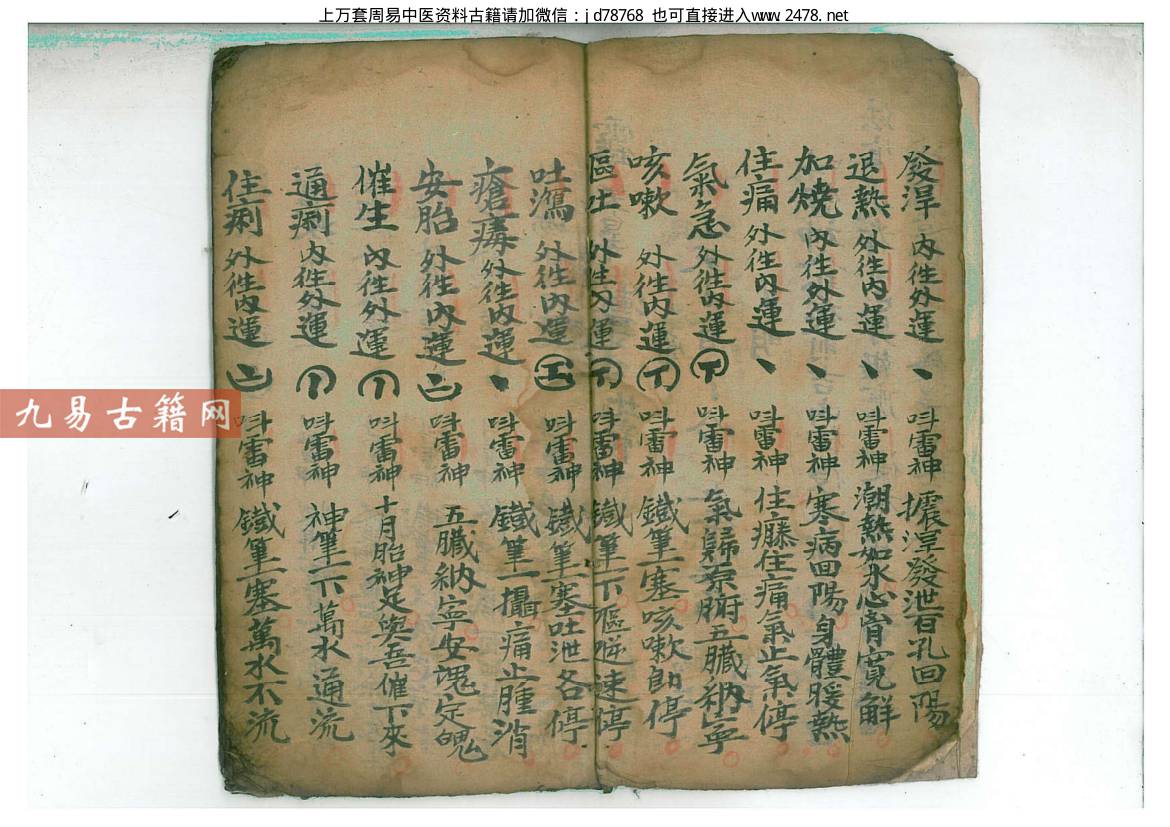 上万套周易中医资料古籍请加微信：jd78768 也可直接进入www.2478.net
發淂 內往外運 丶 呌雷神 擴淳發泄百孔回陽
退熱 外往內運 丶 呌雷神 潮熱如水心膏寬解
加燒 內往外運 丶 呌雷神 寒病回陽身體暖熱
住痛 外往內運 丶 呌雷神 住癢住痛氣止氣停
氣急 外往內運 呌雷神 氣歸原腑五臟納寧
咳嗽 外往內運 呌雷神 鐵筆一塞咳嗽即停
嘔吐 外往內運 呌雷神 鐵筆一下嘔逆速停
吐瀉 外往內運 呌雷神 鐵筆一塞吐泄各停
瘡毒 外往內運 丶 呌雷神 鐵筆一攝痛止腫消
安胎 外往內運 呌雷神 五臟納寧安魂定魄
催生 內往外運 呌雷神 十月胎神足與吾催下來
通痢 內往外運 呌雷神 神筆一下萬水通流
住痢 外往內運 呌雷神 鐵筆一塞萬水不流
九易古籍网